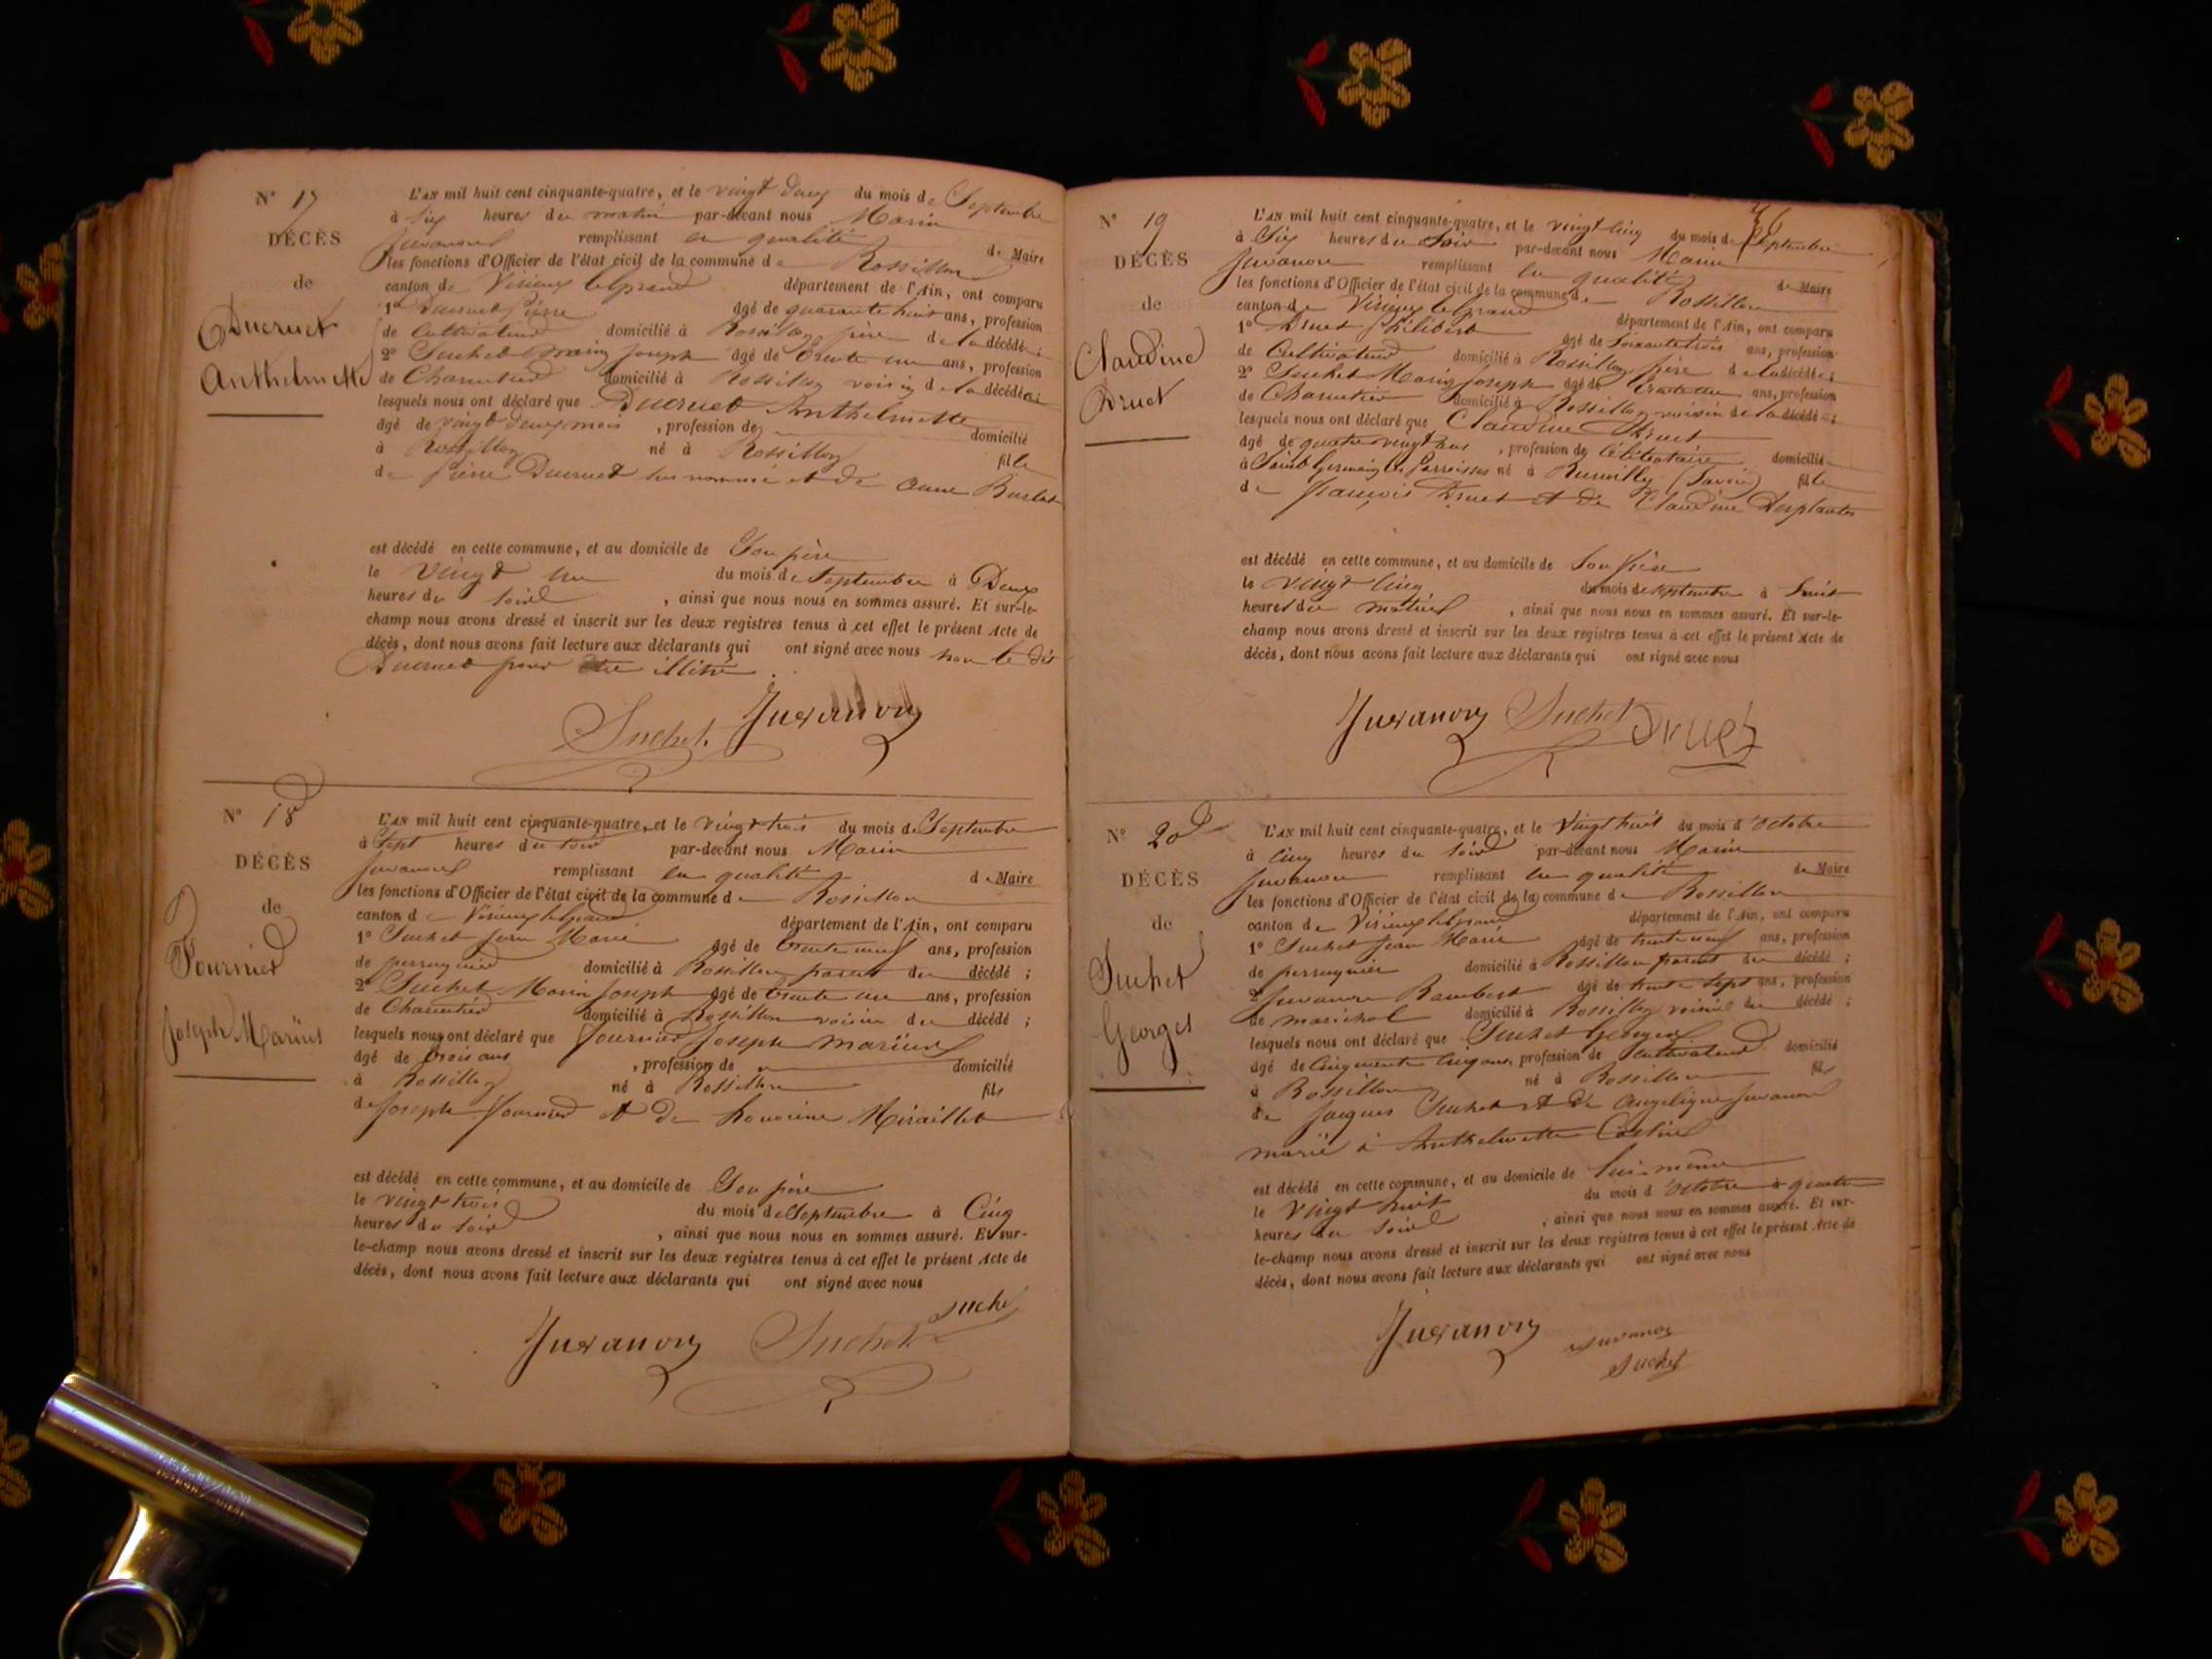 N° 17
DÉCÈS
de
Ducruet
Anthelmette
L'AN mil huit cent cinquante-quatre, et le vingt deux du mois de Septembre
à six heures du matin par-devant nous Marin
Juvanon remplissant en qualité de Maire
les fonctions d'Officier de l'état civil de la commune de Rossillon
canton de Virieux le grand département de l'Ain, ont comparu
1° Ducruet Pierre âgé de quarante huit ans, profession
de Cultivateur domicilié à Rossillon père de la décédée;
2° Suchet Marin Joseph âgé de trente un ans, profession
de Charcutier domicilié à Rossillon voisin de la décédée;
lesquels nous ont déclaré que Ducruet Anthelmette
âgé de vingt deux mois, profession de domicilié
à Rossillon né à Rossillon fille
de Pierre Ducruet sus nommé et de Anne
est décédé en cette commune, et au domicile de Son père
le vingt un du mois de Septembre à Deux
heures du soir, ainsi que nous nous en sommes assuré. Et sur-le-
champ nous avons dressé et inscrit sur les deux registres tenus à cet effet le présent Acte de
décès, dont nous avons fait lecture aux déclarants qui ont signé avec nous non le dit
Ducruet pour être illitré.
Suchet Juvanon
N° 18
DÉCÈS
de
Fournier
Joseph Marius
L'AN mil huit cent cinquante-quatre, et le vingt trois du mois de Septembre
à Sept heures du soir par-devant nous Marin
Juvanon remplissant en qualité de Maire
les fonctions d'Officier de l'état civil de la commune de Rossillon
canton de Virieux le grand département de l'Ain, ont comparu
1° Suchet Jean Marie âgé de trente neuf ans, profession
de perruquier domicilié à Rossillon parent du décédé;
2° Suchet Marin Joseph âgé de trente un ans, profession
de Charcutier domicilié à Rossillon voisin du décédé;
lesquels nous ont déclaré que Fournier Joseph Marius
âgé de trois ans, profession de domicilié
à Rossillon né à Rossillon fils
de Joseph Fournier et de Honorine Miraillet
est décédé en cette commune, et au domicile de Son père
le vingt trois du mois de Septembre à Cinq
heures du soir, ainsi que nous nous en sommes assuré. Et sur-
le-champ nous avons dressé et inscrit sur les deux registres tenus à cet effet le présent Acte de
décès, dont nous avons fait lecture aux déclarants qui ont signé avec nous
Juvanon Suchet Suchet
N° 19
DÉCÈS
de
Claudine
Druet
L'AN mil huit cent cinquante-quatre, et le vingt cinq du mois de Septembre
à Six heures du Soir par-devant nous Marin
Juvanon remplissant en qualité de Maire
les fonctions d'Officier de l'état civil de la commune de Rossillon
canton de Virieux le grand département de l'Ain, ont comparu
1° Druet Philibert âgé de soixante trois ans, profession
de Cultivateur domicilié à Rossillon frère de la décédée;
2° Suchet Marin Joseph âgé de trente un ans, profession
de Charcutier domicilié à Rossillon voisin de la décédée;
lesquels nous ont déclaré que Claudine Druet
âgé de quatre vingt ans, profession de Célibataire domicilié
à Saint Germain les Parroisses né à Rumilly (Savoie) fille
de François Druet et de Claudine Desplantes
est décédé en cette commune, et au domicile de Son frère
le vingt cinq du mois de septembre à huit
heures du matin, ainsi que nous nous en sommes assuré. Et sur-le-
champ nous avons dressé et inscrit sur les deux registres tenus à cet effet le présent Acte de
décès, dont nous avons fait lecture aux déclarants qui ont signé avec nous
Juvanon Suchet Druet
N° 20
DÉCÈS
de
Suchet
Georges
L'AN mil huit cent cinquante-quatre, et le Vingt huit du mois d'octobre
à Cinq heures du soir par-devant nous Marin
Juvanon remplissant en qualité de Maire
les fonctions d'Officier de l'état civil de la commune de Rossillon
canton de Virieux le grand département de l'Ain, ont comparu
1° Suchet Jean Marie âgé de trente neuf ans, profession
de perruquier domicilié à Rossillon parent du décédé;
2° Juvanon Rambert âgé de trente sept ans, profession
de maréchal domicilié à Rossillon voisin du décédé;
lesquels nous ont déclaré que Suchet Georges
âgé de cinquante cinq ans, profession de cultivateur domicilié
à Rossillon né à Rossillon fils
de Jacques Suchet et de Angélique Juvanon
marié à Anthelmette
est décédé en cette commune, et au domicile de lui-même
le Vingt huit du mois d'octobre à quatre
heures du soir, ainsi que nous nous en sommes assuré. Et sur-
le-champ nous avons dressé et inscrit sur les deux registres tenus à cet effet le présent Acte de
décès, dont nous avons fait lecture aux déclarants qui ont signé avec nous
Juvanon Juvanon
Suchet